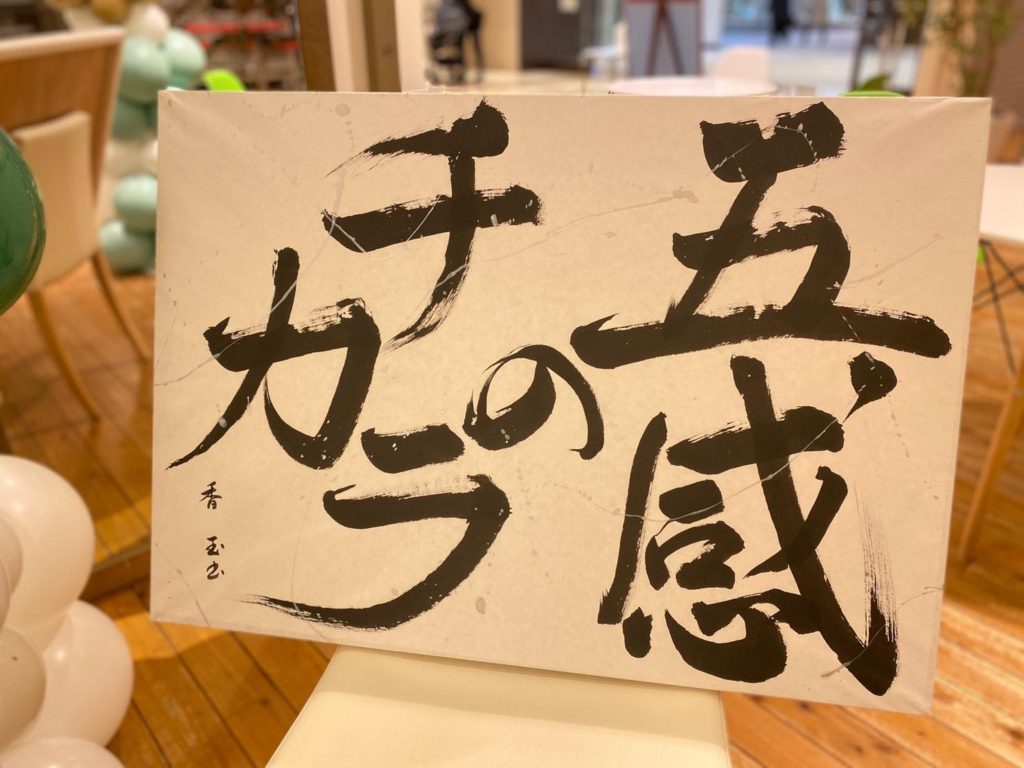 五感
の
チカラ
香玉書